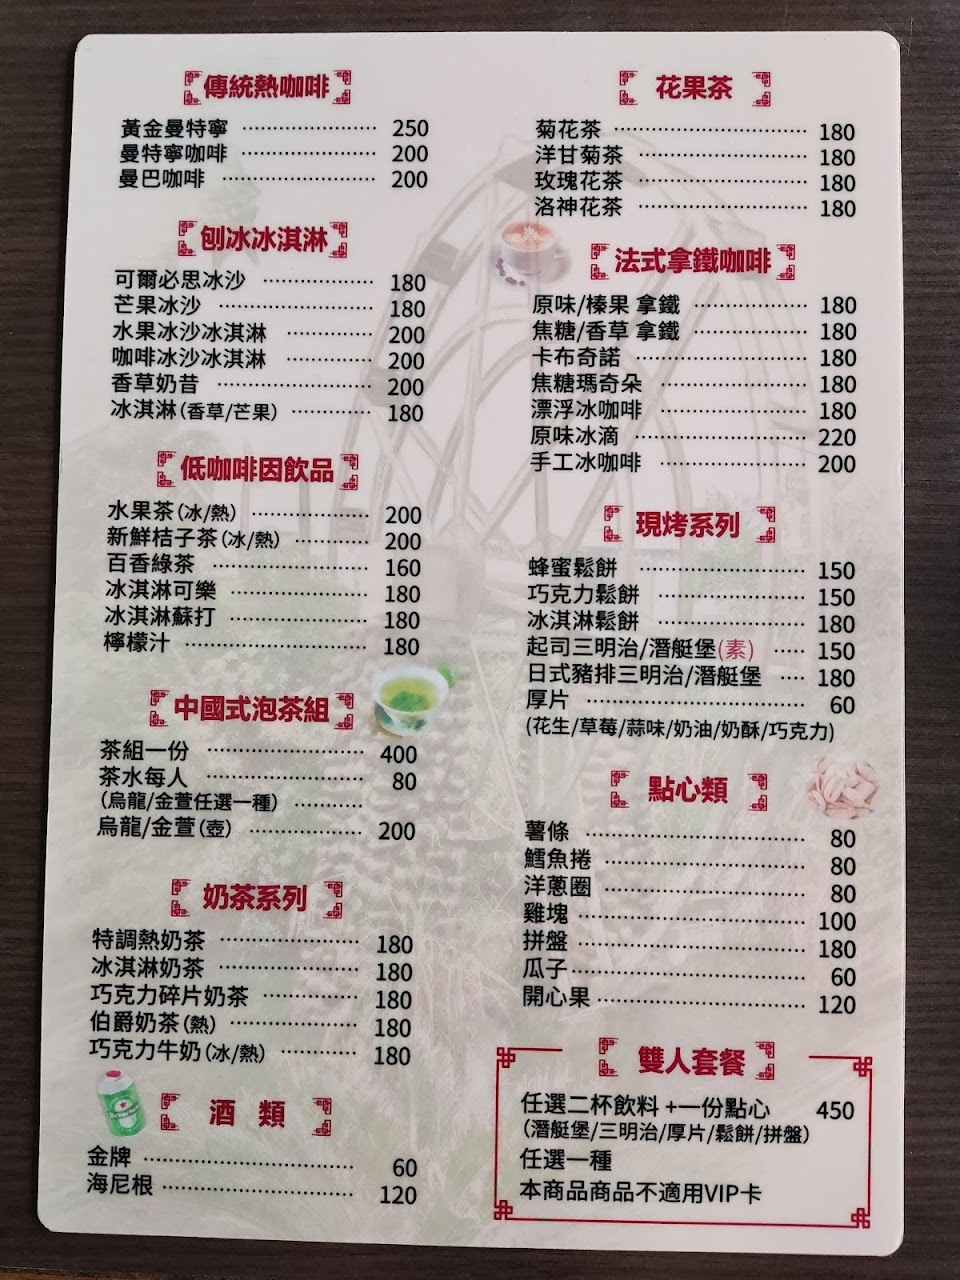 傳統熱咖啡
黃金曼特寧 250
曼特寧咖啡 200
曼巴咖啡 200
刨冰冰淇淋
可爾必思冰沙 180
芒果冰沙 180
水果冰沙冰淇淋 200
咖啡冰沙冰淇淋 200
香草奶昔 200
冰淇淋(香草/芒果) 180
低咖啡因飲品
水果茶(冰/熱) 200
新鮮桔子茶(冰/熱) 200
百香綠茶 160
冰淇淋可樂 180
冰淇淋蘇打 180
檸檬汁 180
中國式泡茶組
茶組一份 400
茶水每人 80
(烏龍/金萱任選一種)
烏龍/金萱(壺) 200
奶茶系列
特調熱奶茶 180
冰淇淋奶茶 180
巧克力碎片奶茶 180
伯爵奶茶(熱) 180
巧克力牛奶(冰/熱) 180
酒 類
金牌 60
海尼根 120
花果茶
菊花茶 180
洋甘菊茶 180
玫瑰花茶 180
洛神花茶 180
法式拿鐵咖啡
原味/榛果 拿鐵 180
焦糖/香草 拿鐵 180
卡布奇諾 180
焦糖瑪奇朵 180
漂浮冰咖啡 180
原味冰滴 220
手工冰咖啡 200
現烤系列
蜂蜜鬆餅 150
巧克力鬆餅 150
冰淇淋鬆餅 180
起司三明治/潛艇堡(素) 150
日式豬排三明治/潛艇堡 180
厚片 60
(花生/草莓/蒜味/奶油/奶酥/巧克力)
點心類
薯條 80
鱈魚捲 80
洋蔥圈 80
雞塊 100
拼盤 180
瓜子 60
開心果 120
雙人套餐
任選二杯飲料 +一份點心 450
(潛艇堡/三明治/厚片/鬆餅/拼盤)
任選一種
本商品商品不適用VIP卡